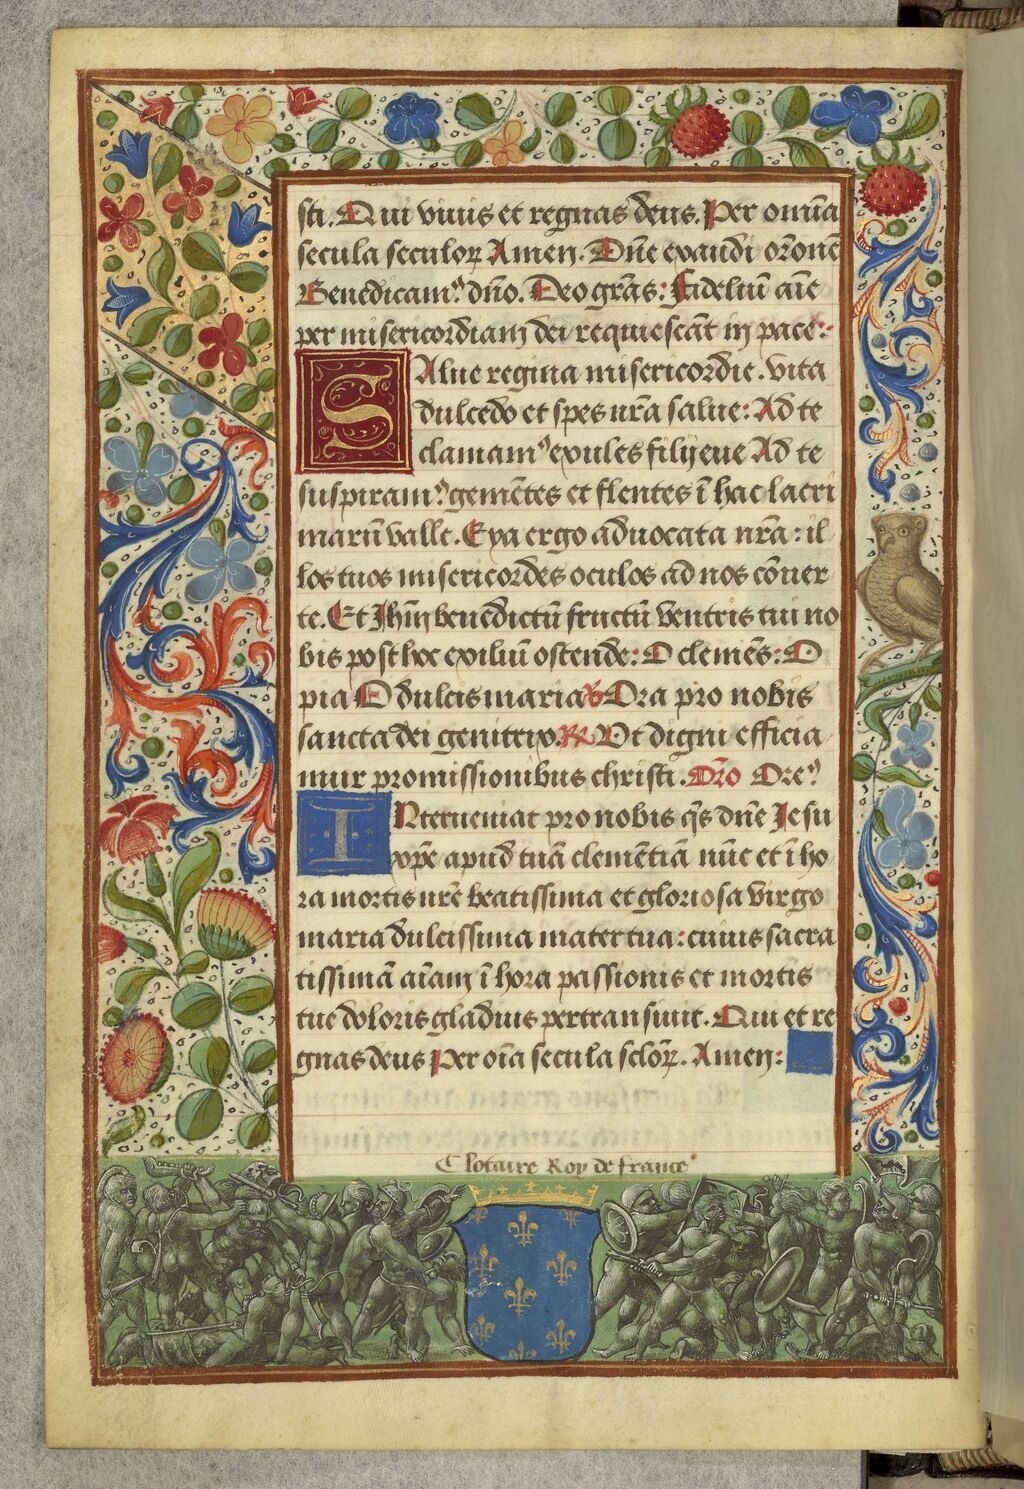 sti. Qui viuis et regnas deus. Per om̄ia
secula seculoꝝ Amen. Dn̄e exaudi or̄onē
Benedicam⁹ dn̄o. Deo gr̄as: fideliū aīe
per misericordiam dei requiescāt in pace:
SAlue regina misericordie. vita
dulcedo et spes nr̄a salue: Ad te
clamam⁹ exules filij eue Ad te
suspiram⁹ gemētes et flentes ī hac lacri
marū valle. Eya ergo aduocata nr̄a: il
los tuos misericordes oculos ad nos cōuer
te. Et Jhm̄ benedictū fructū ventris tui no
bis post hoc exiliū ostende: O clemēs: O
pia O dulcis maria ℣ Ora pro nobis
sancta dei genitrix. ℟ Vt digni efficia
mur promissionibus christi. Or̄o Ore⁹
INterueniat pro nobis q̄s dn̄e Jesu
xp̄e apud tuā clemētiā nūc et ī ho
ra mortis nr̄e beatissima et gloriosa virgo
maria dulcissima mater tua: cuius sacra
tissimā aīam ī hora passionis et mortis
tue doloris gladius pertransiuit. Qui et re
gnas deus Per oīa secula sclōꝝ. Amen:
Clotaire Roy de france